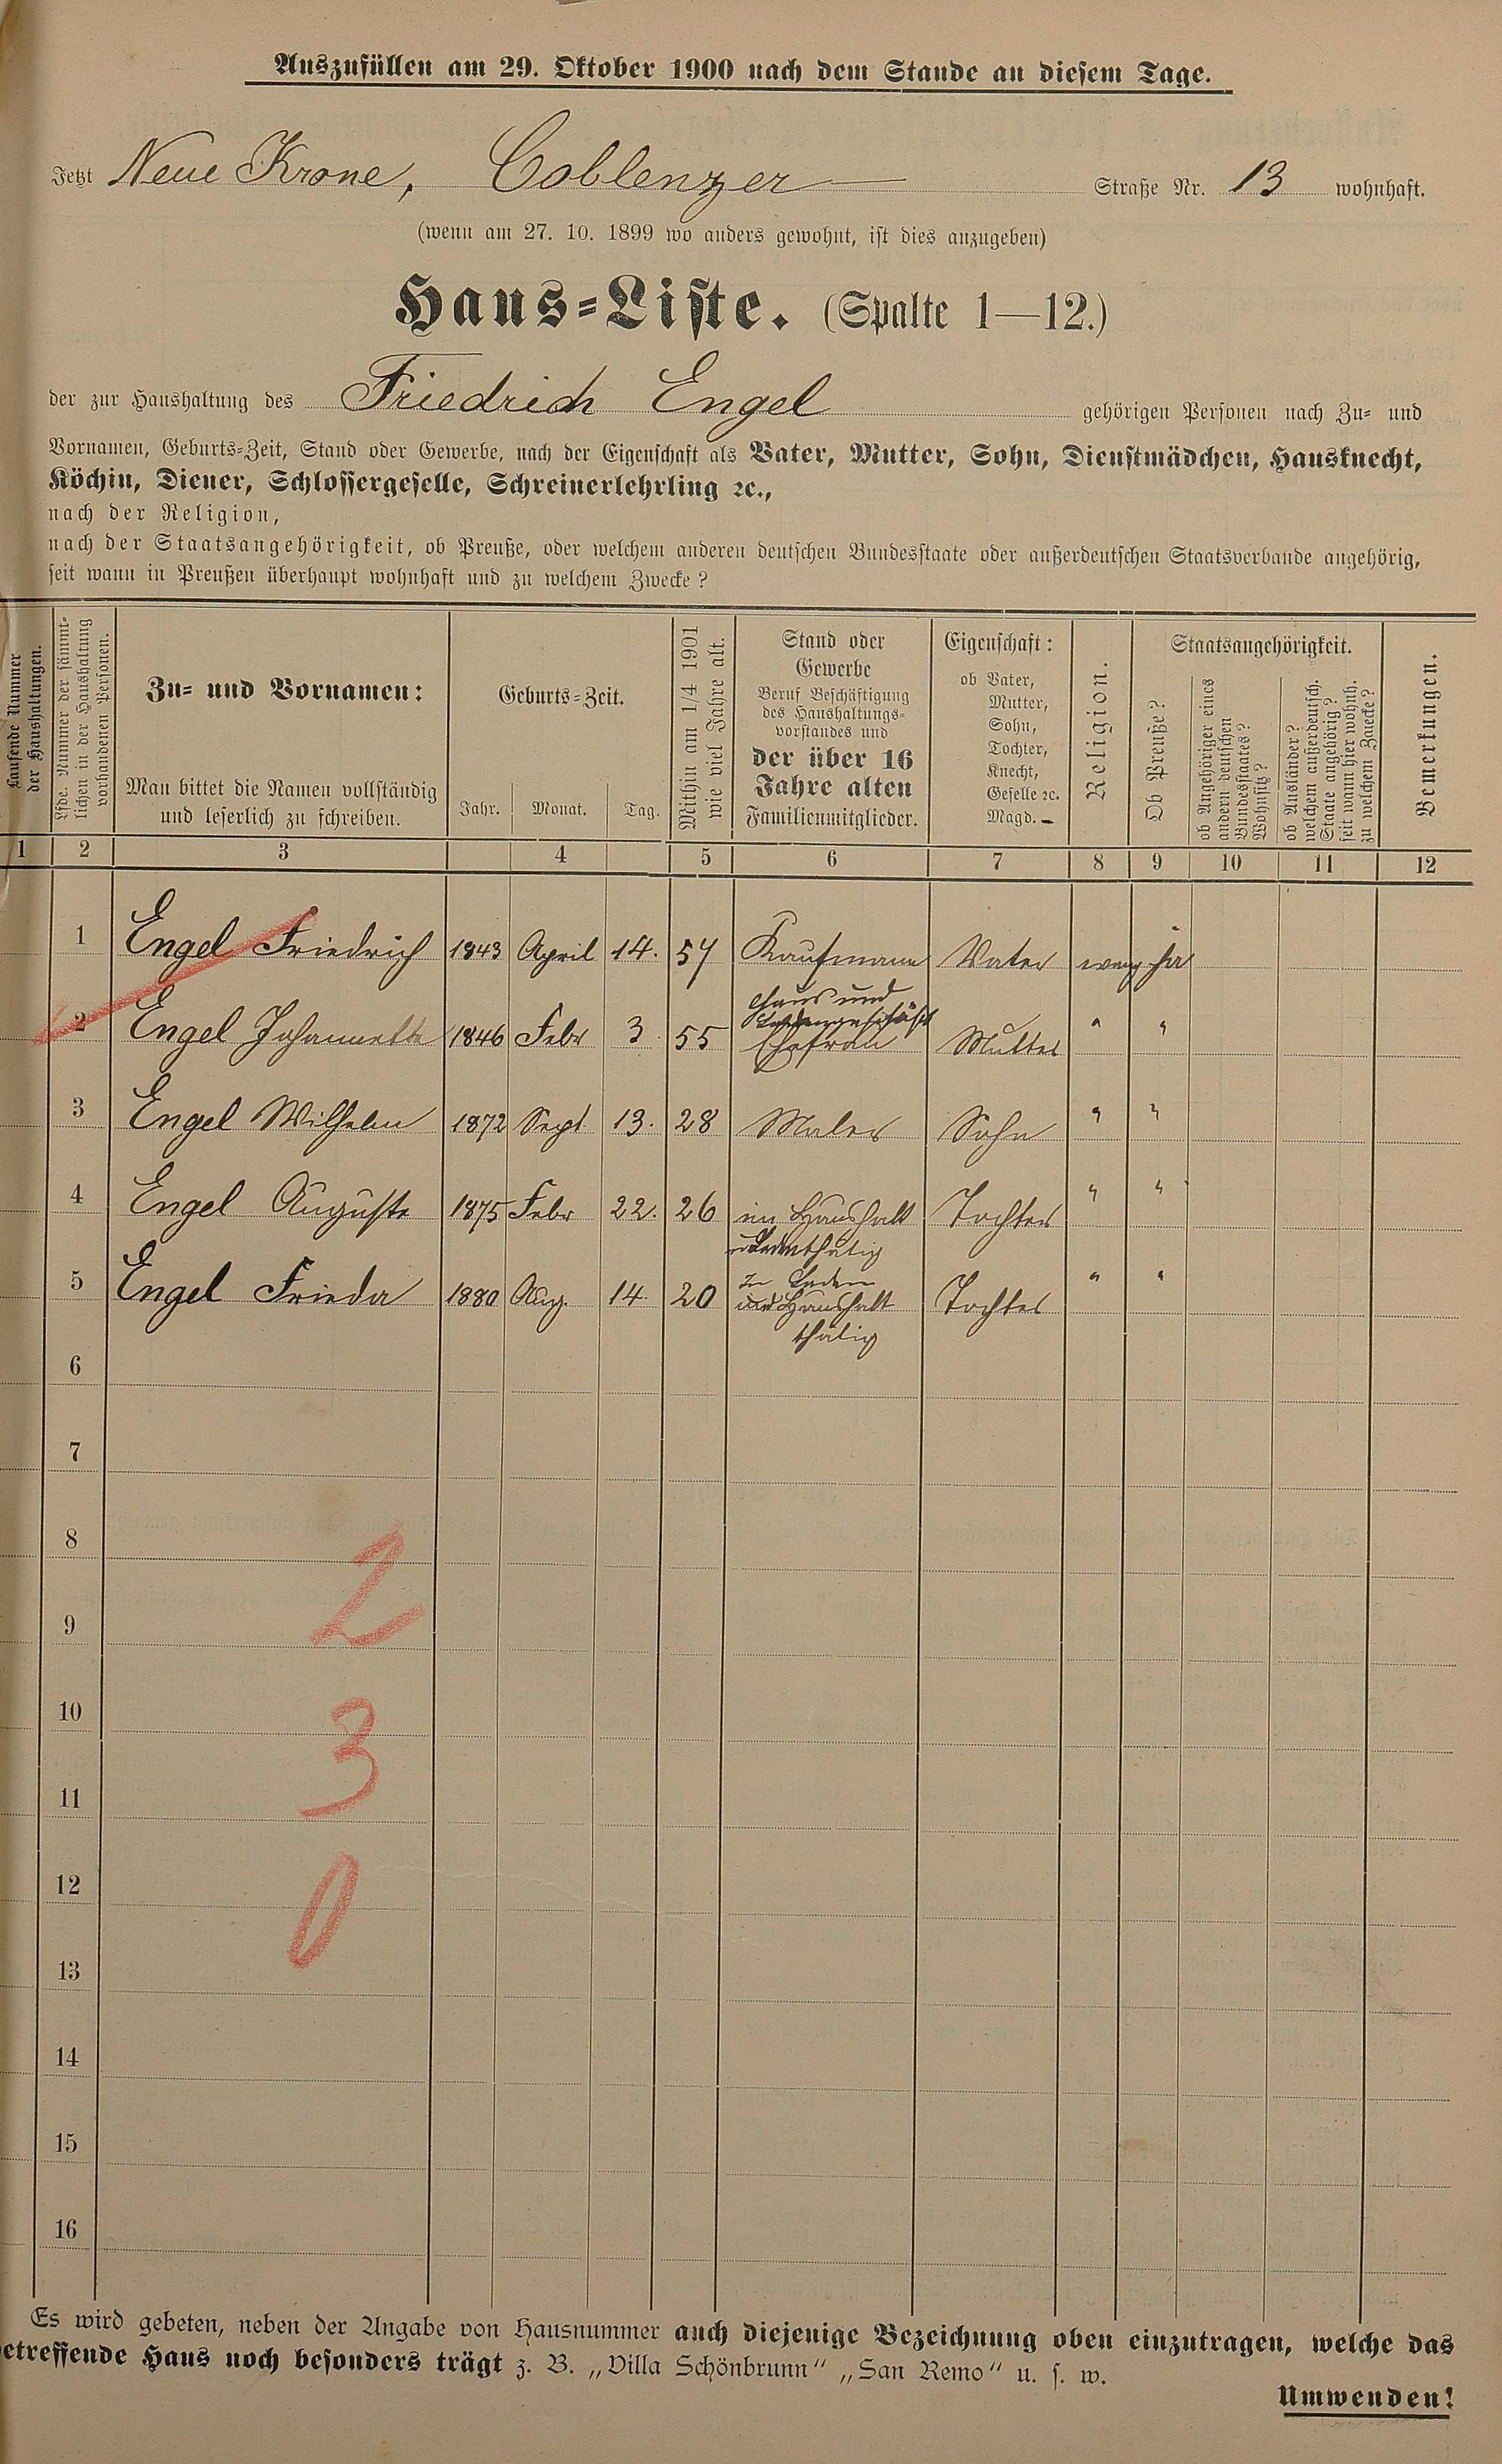 Auszufüllen am 29. Oktober 1900 nach dem Stande an diesem Tage.
Jetzt Neue Krone, Coblenzer Straße Nr. 13 wohnhaft.
(wenn am 27. 10. 1899 wo anders gewohnt, ist dies anzugeben)
Haus-Liste. (Spalte 1—12.)
der zur Haushaltung des Friedrich Engel gehörigen Personen nach Zu- und
Vornamen, Geburts-Zeit, Stand oder Gewerbe, nach der Eigenschaft als Vater, Mutter, Sohn, Dienstmädchen, Hausknecht,
Köchin, Diener, Schlossergeselle, Schreinerlehrling ꝛc.,
nach der Religion,
nach der Staatsangehörigkeit, ob Preuße, oder welchem anderen deutschen Bundesstaate oder außerdeutschen Staatsverbande angehörig,
seit wann in Preußen überhaupt wohnhaft und zu welchem Zwecke?
Laufende Nummer
der Haushaltungen.
Lfde. Nummer der sämmt-
lichen in der Haushaltung
vorhandenen Personen.
Zu- und Vornamen:
Man bittet die Namen vollständig
und leserlich zu schreiben.
Geburts-Zeit.
Jahr. Monat. Tag.
Mithin am 1/4 1901
wie viel Jahre alt.
Stand oder
Gewerbe
Beruf Beschäftigung
des Haushaltungs-
vorstandes und
der über 16
Jahre alten
Familienmitglieder.
Eigenschaft:
ob Vater,
Mutter,
Sohn,
Tochter,
Knecht,
Geselle ꝛc.
Magd.
Religion.
Staatsangehörigkeit.
Ob Preuße?
ob Angehöriger eines
andern deutschen
Bundesstaates?
Wohnsitz?
ob Ausländer?
welchem außerdeutsch.
Staate angehörig?
seit wann hier wohnh.
zu welchem Zwecke?
Bemerkungen.
1 2 3 4 5 6 7 8 9 10 11 12
1 Engel Friedrich 1843 April 14. 57 Kaufmann Vater evang ja
2 Engel Johannette 1846 Febr 3. 55 Haus und Ladengeschäft Ehefrau Mutter " "
3 Engel Wilhelm 1872 Sept 13. 28 Maler Sohn " "
4 Engel Auguste 1875 Febr 22. 26 im Haushalt u Laden thätig Tochter " "
5 Engel Frieda 1880 Aug. 14. 20 In Laden und Haushalt thätig Tochter " "
6
7
8
2
9
10
3
11
12
0
13
14
15
16
Es wird gebeten, neben der Angabe von Hausnummer auch diejenige Bezeichnung oben einzutragen, welche das
etreffende Haus noch besonders trägt z. B. „Villa Schönbrunn" „San Remo" u. s. w.
Umwenden!